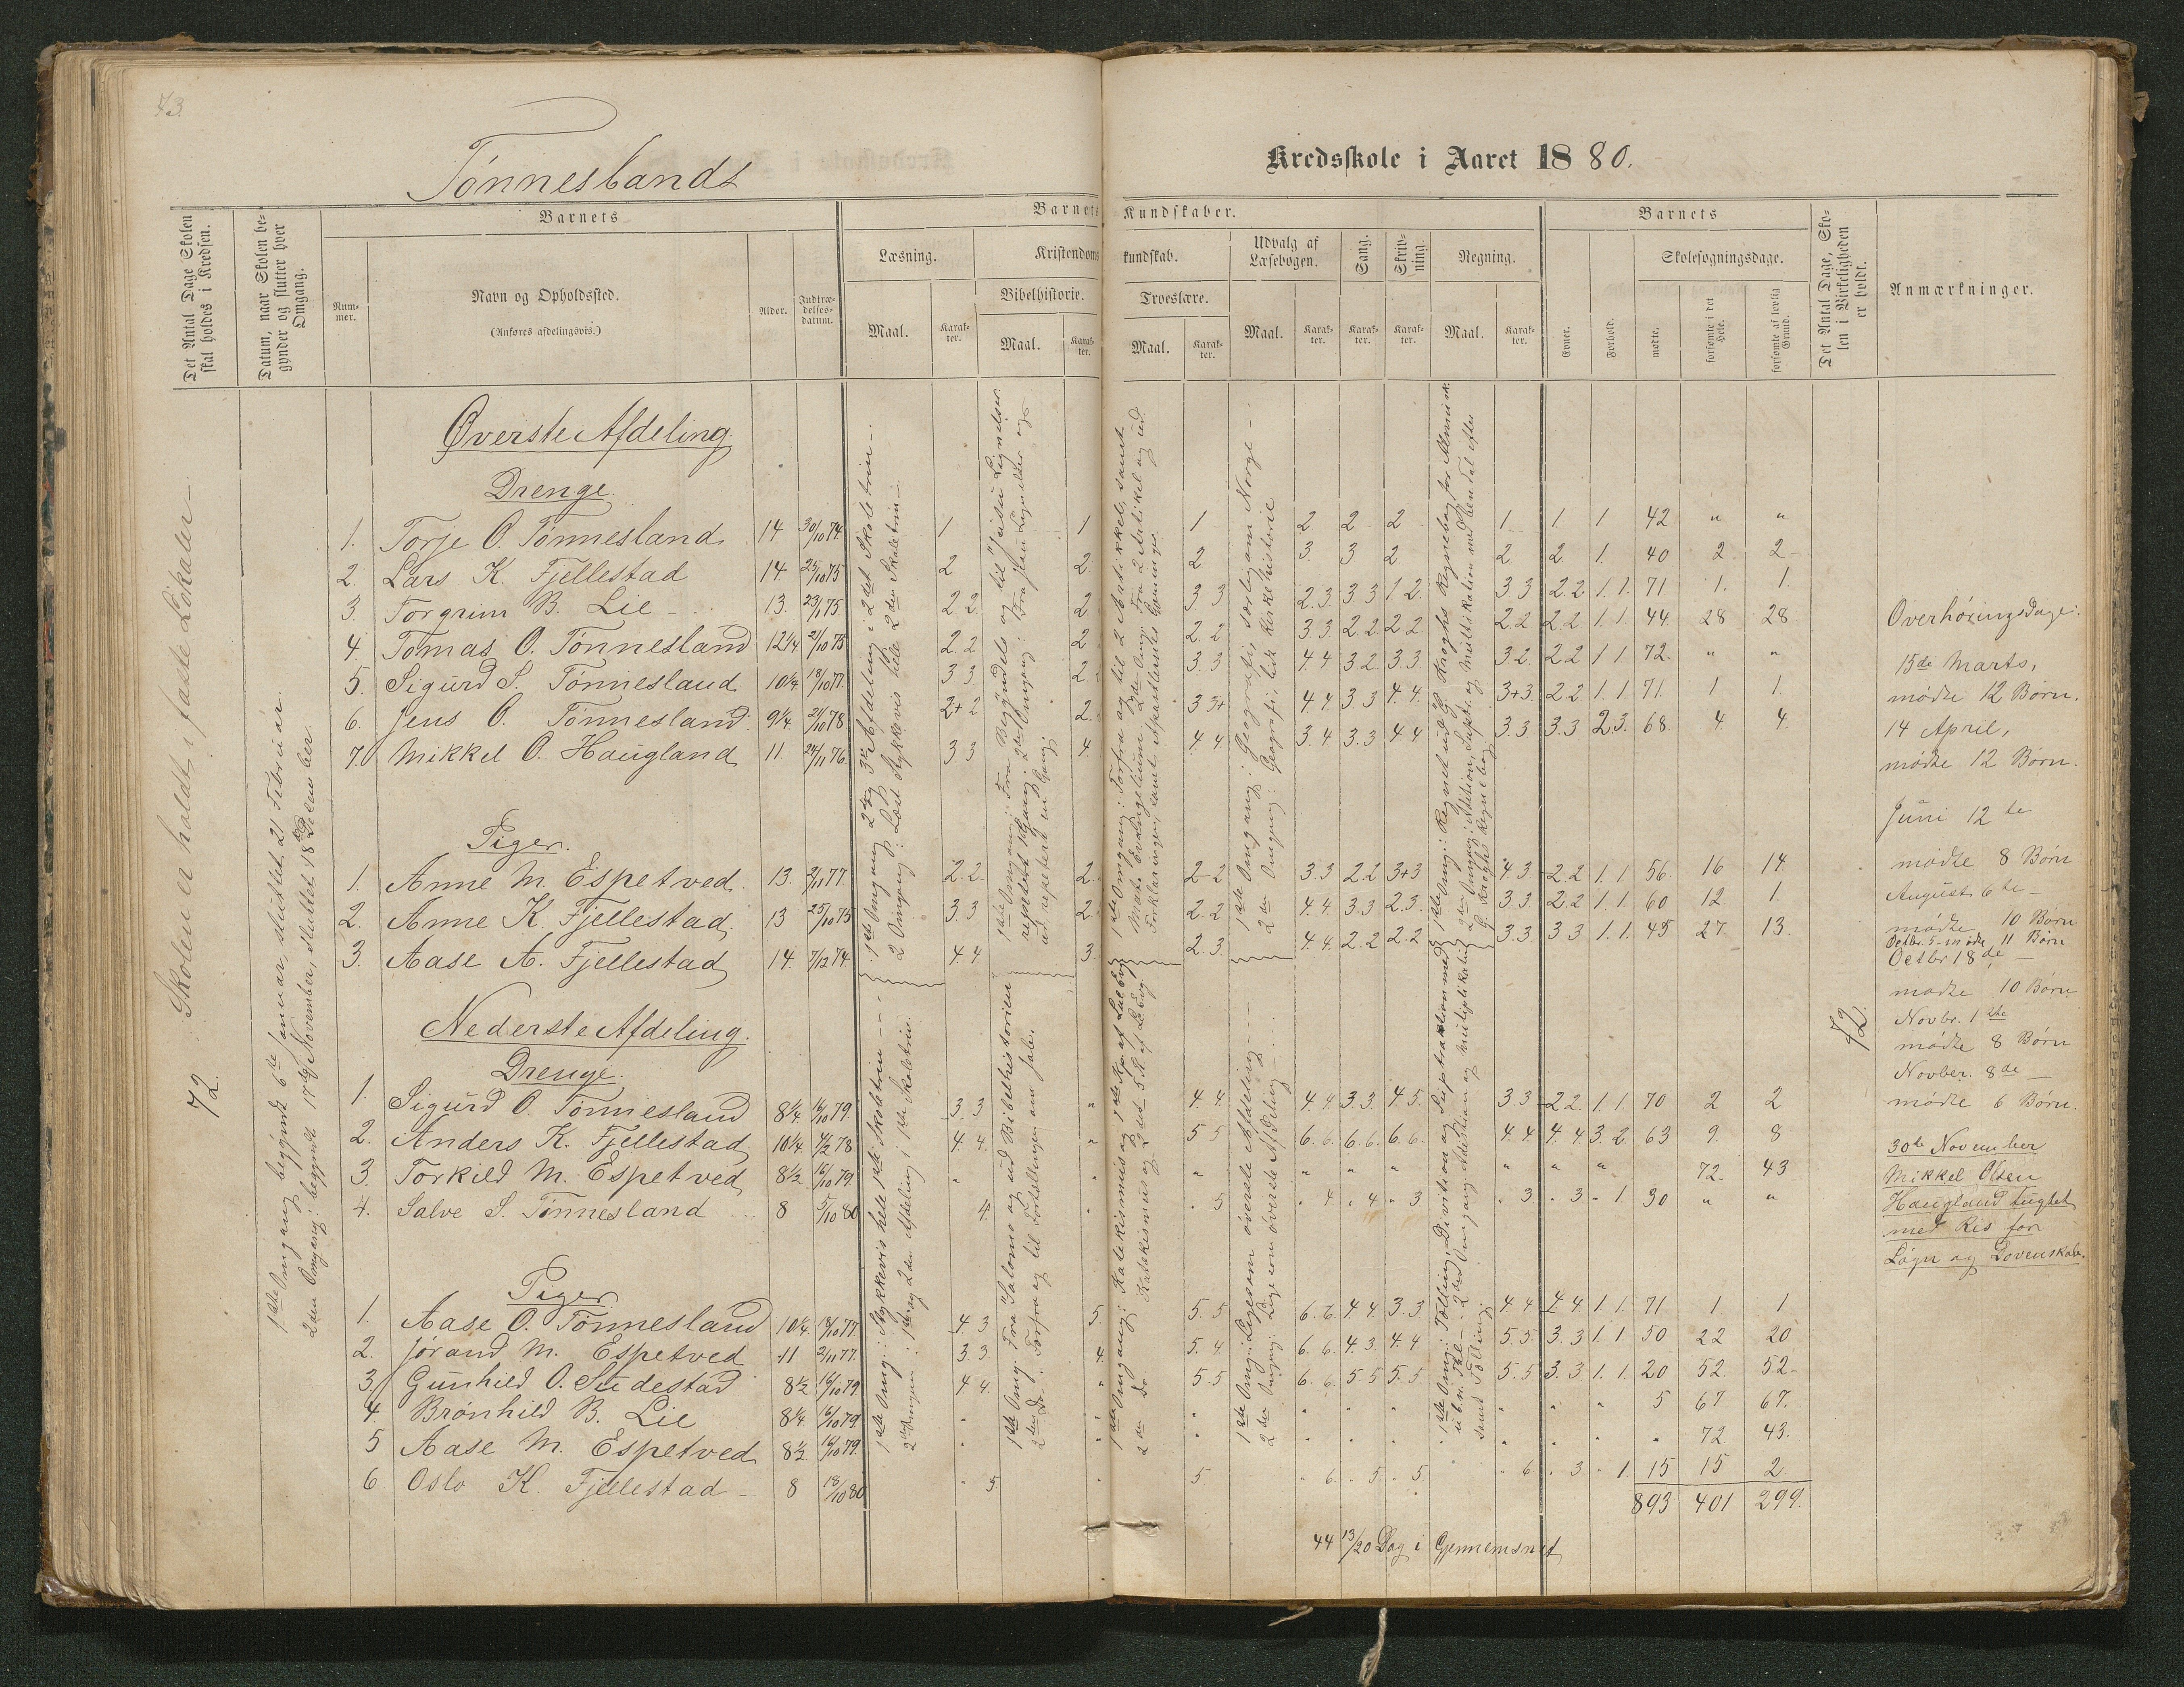 73
Tønneslands
Kredsskole i Aaret 1880.
Det Antal Dage Skolen skal holdes i Kredsen.
Datum, naar Skolen begynder og slutter hver Omgang.
Barnets
Nummer.
Navn og Opholdssted.
(Anføres afdelingsvis.)
Alder.
Indtrædelsesdatum.
Barnets Kundskaber.
Læsning.
Maal.
Karakter.
Kristendomskundskab.
Bibelhistorie.
Maal.
Karakter.
Troeslære.
Maal.
Karakter.
Udvalg af Læsebogen.
Maal.
Karakter.
Sang.
Karakter.
Skrivning.
Karakter.
Regning.
Maal.
Karakter.
Barnets
Evner.
Forhold.
Skolesøgningsdage.
mødte.
forsømte i det Hele.
forsømte af lovlig Grund.
Det Antal Dage, Skolen i Virkeligheden er holdt.
Anmærkninger.
Skolen er holdt i faste Lokaler
72.
1ste Omgang begyndt 6te Januar, sluttet 21 Februar.
2den Omgang: begyndt 17de November, sluttet 18de December
Øverste Afdeling.
Drenge.
1. Torje O. Tønnesland 14 30/10 74 1 1 1 2 2 2 1 1 1 42 " "
2. Lars K. Fjellestad 14. 25/10 75 2 2 2 3. 3 2 2 2 1. 40 2 2
3. Torgrim B. Lie 13. 23/1 75 2.2. 2 3 3 2.3 3 3 1.2. 3 3 2.2 1.1. 71 1. 1.
4. Tomas O. Tønnesland 12 1/4 21/10 75 2.2 2 2.2 3.3 2.2 2 2 2.2 2.2 1.1. 44. 28 28
5. Sigurd S. Tønnesland 10 1/4 18/10 77. 3 3 2. 3.3 4.4 3.2. 3.3. 3 2. 2 2 1 1 72. " "
6. Jens O. Tønnesland 9 1/4. 21/10 78 2+2 2. 3 3+ 4 4 3 3 4.4. 3+3 2 2 1.1. 71. 1 1.
7. Mikkel O. Haugland 11 24/11 76 3 3 4. 4.4. 3.4 3.3 4 4 3.3 3.3 2.3. 68. 4 4.
Piger.
1. Anne M. Espetved. 13. 2/11 77. 2.2. 2. 2-2 3.3 2.2 3+3 4.3 2.2 1.1 56. 16 14.
2. Anne K. Fjellestad. 13 25/10 75 3.3 2 2.2 4.4. 3.3 2.3. 3 3 2.2 1.1. 60 12 1.
3. Aase A. Fjellestad 14. 7/12 74. 4.4. 3. 2.3. 4.4. 2.2 2.2 3.3 3 3 1.1. 45 27 13.
Nederste Afdeling.
Drenge.
1. Sigurd O. Tønnesland 8 1/4. 16/10 79. 3.3 " 4.4. 4.4 3.3. 4.5. 3.3 2 2. 1.1. 70 2 2
2. Anders K. Fjellestad 10 1/4 4/2 78. 4.4. " 5 5 6.6. 6.6. 6.6. 4.4 4.4 3.2. 63 9. 8
3. Torkild M. Espetved 8 1/2 16/10 79. " " " " " " " " " 72. 43
4. Salve S. Tønnesland 8 5/10 80 4. " 5 " 4 " 4 " 3. " 3 " 3 " 1. 30 " "
Piger
1. Aase O. Tønnesland 10 1/4 18/10 77. 4.3 5. 5.5 6.6. 4.4 3.3 4.4 4.4. 1.1. 71 1 1
2. Jorand M. Espetved 11 2/11 77. 3.3. 4. 5.4 6.6. 4.3 4.4 5 5. 3.3 1.1 50 22 20
3. Gunhild O. Studestad 8 1/2 16/10 79 4 4. " 5.5 6.6. 5 5 5.5 5.5 3.3 1.1. 20 52. 52
4. Brønhild B. Lie 8 1/4 16/10 79 " " " " " " " " " 5 67 67.
5 Aase M. Espetved 8 1/2 16/10 79. " " " " " " " " " " 72 43.
6 Oslo K. Fjellestad 8 18/10 80 " 5 " 5 " 6. " 5. " 5. " 6 " 3. " 1. 15 15 2
893 401 299.
44 13/20 Dag i Gjennemsnit
1ste Omgang 2 og 3die Afdeling i 2det Skoletrin
2 Omgang: Læst stykkevis hele 2den Skoletrin
1ste Omgang: Forfra og til 2 Artikkel, samt
1ste Omgang: Geografi, særlig om Norge
2den Omgang: Geografi, lidt Kirkehistorie
72
Overhøringsdage:
15de Marts,
mødte 12 Børn.
14 April,
mødte 12 Børn.
Juni 12te
mødte 8 Børn
August 6te
mødte 10 Børn
Octbr. 5 mødte 11 Børn
Octbr 18de
mødte 10 Børn
Novbr. 1ste
mødte 8 Børn
Novber. 8de
mødte 6 Børn.
30te November
Mikkel Olsen
Haugland tugtet
med Ris for
Løgn og Dovenskab.